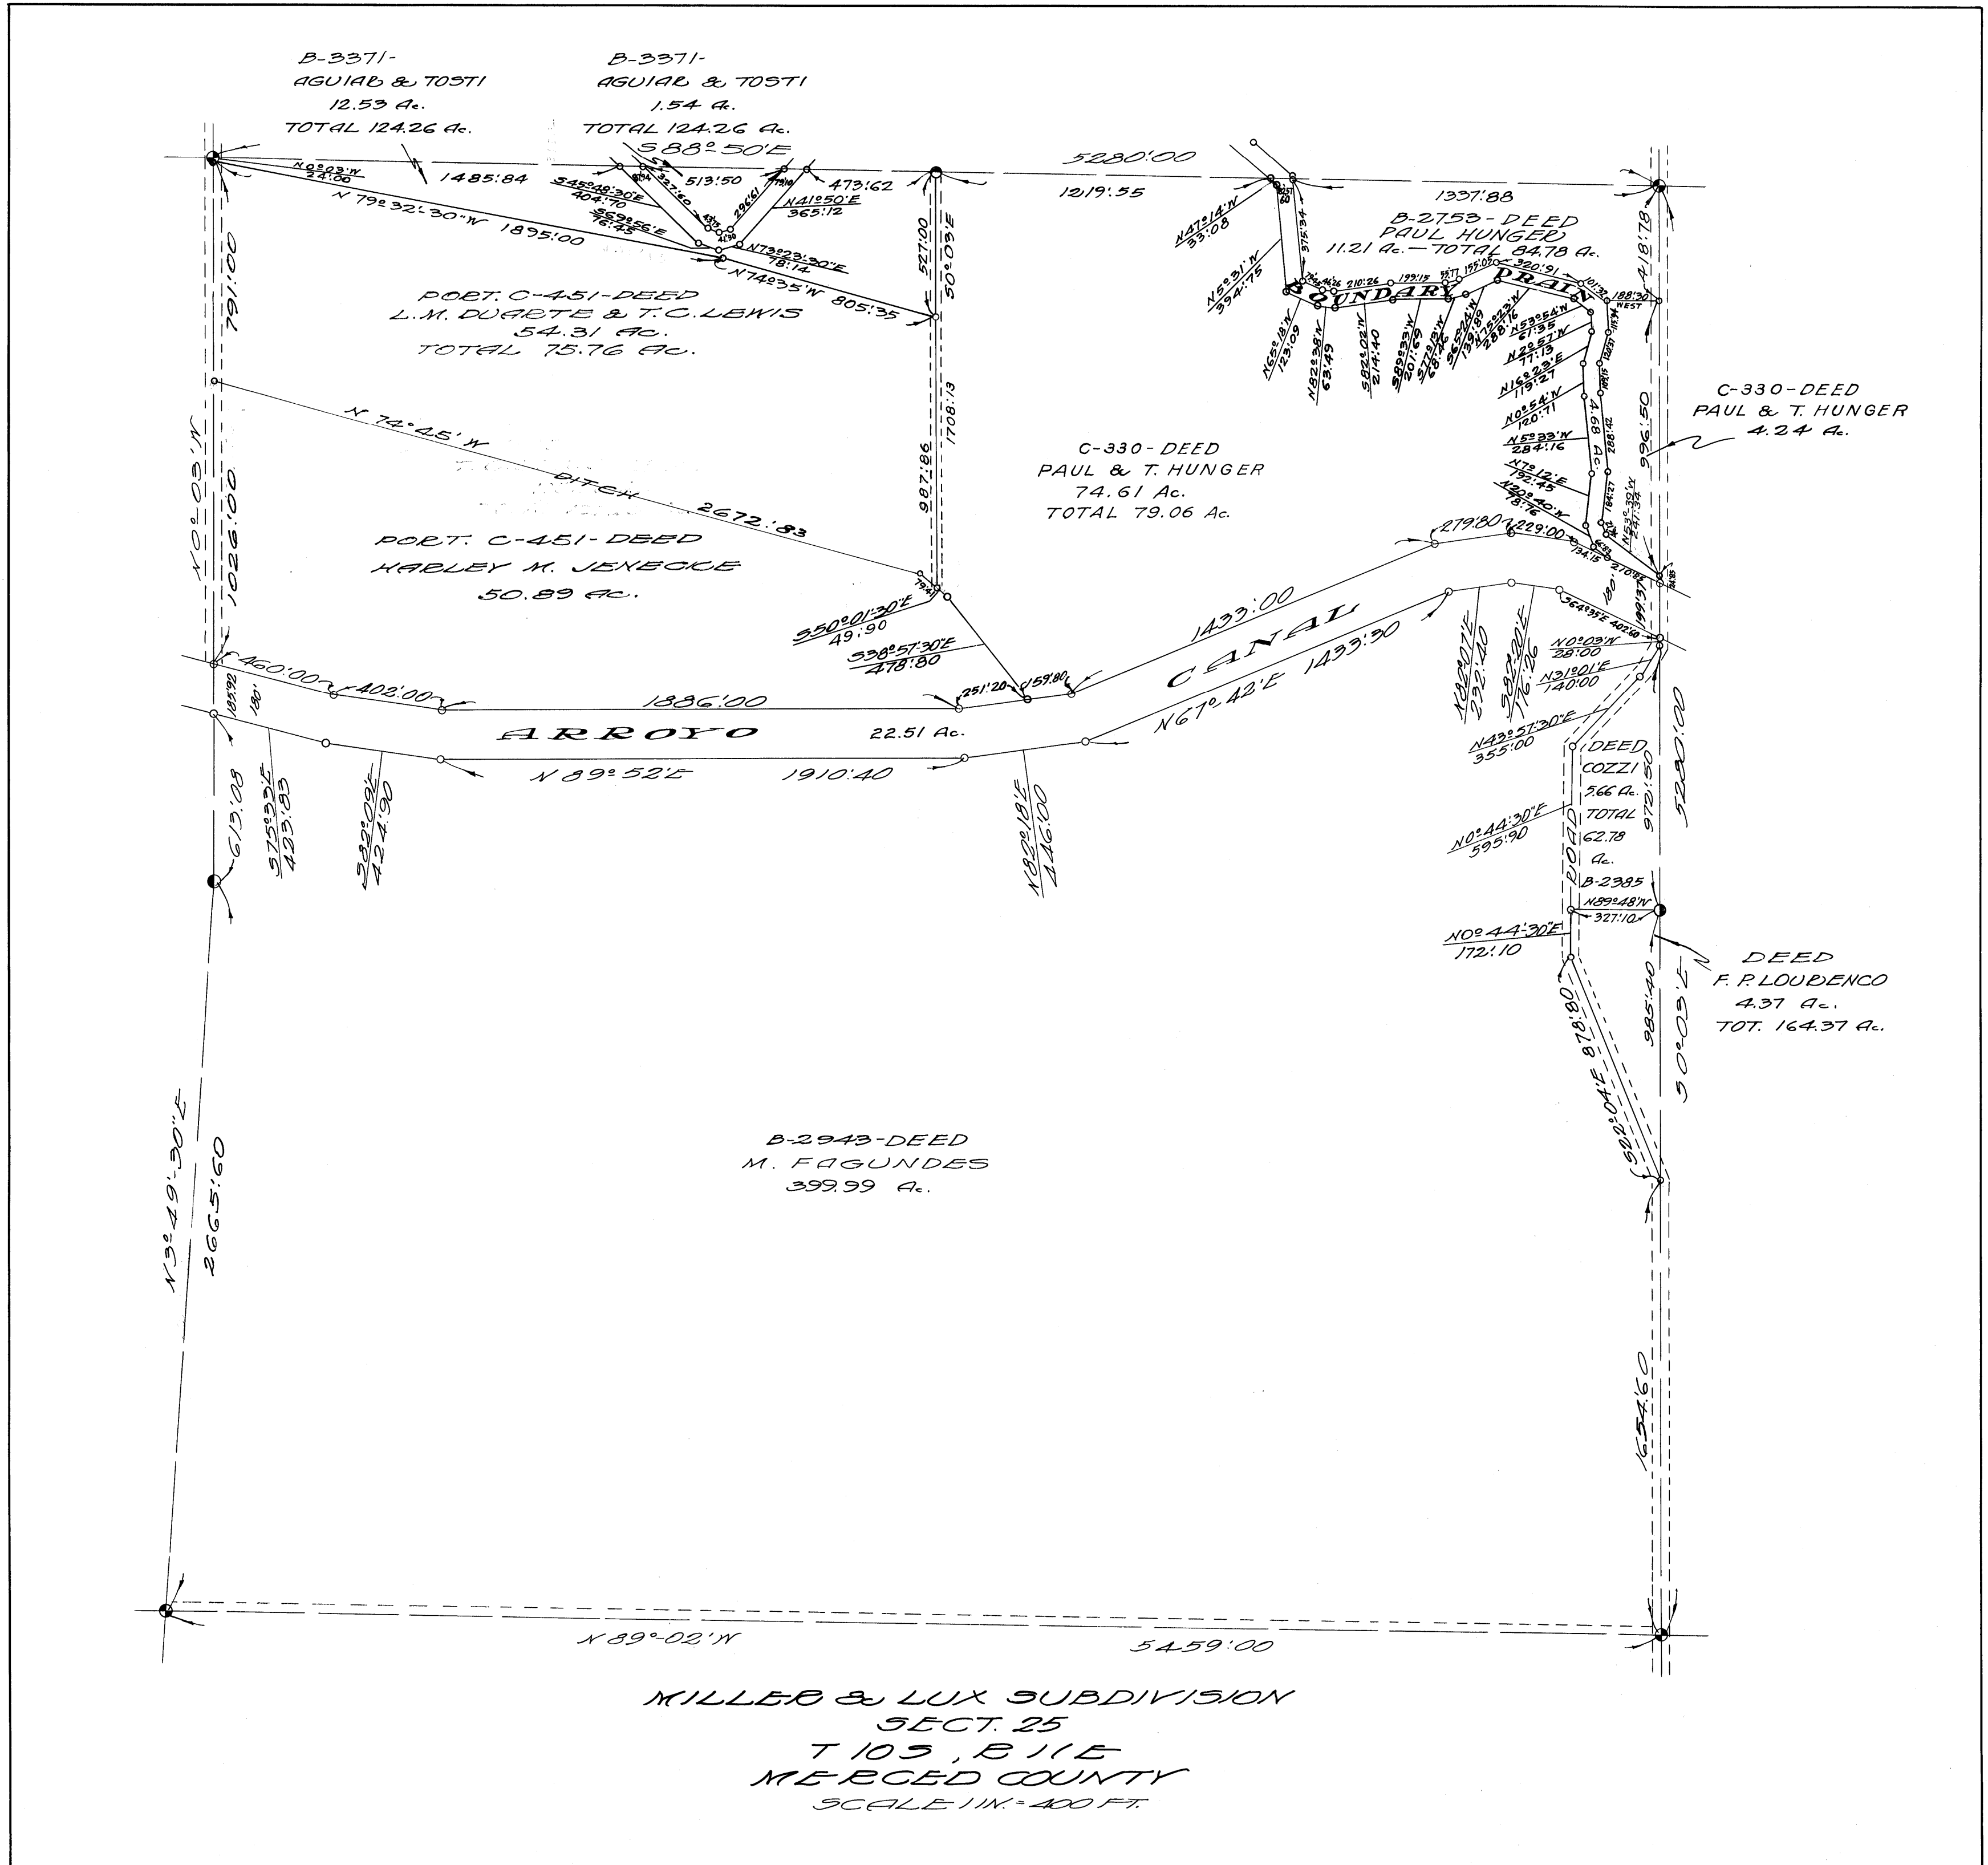 B-3371-
AGUIAR & TOSTI
12.53 Ac.
TOTAL 124.26 Ac.
B-3371-
AGUIAR & TOSTI
1.54 Ac.
TOTAL 124.26 Ac.
S88°50'E
5280:00
N0°03'W
24:00
1485:84
513:50
473:62
1219:55
1337:88
N 79°32'-30"W 1895:00
S45°48'30"E
404:70
S69°56'E
76:45
327:60
296:61
N41°50'E
365:12
N73°23'30"E
78:14
N74°35'W 805:35
527:00
S0°03'E
791:00
PORT. C-451-DEED
L.M. DUARTE & T.C. LEWIS
54.31 Ac.
TOTAL 75.76 Ac.
N47°14'W
33:08
N5°31'W
394:75
375:34
B-2753-DEED
PAUL HUNGER
11.21 Ac.-TOTAL 84.78 Ac.
418:78
BOUNDARY DRAIN
210:26
199:15
155:05
320:91
101:32
188:30
WEST
N65°18'W
123:09
N82°38'W
63:49
S82°02'W
214:40
S89°33'W
201:69
S77°13'W
68:46
S65°24'W
139:89
N75°23'W
288:16
N53°54'W
61:35
N2°57'W
77:13
N16°23'E
119:27
N0°54'W
120:71
N5°33'W
284:16
N7°12'E
192:45
N20°40'W
78:76
4.68 Ac.
288:42
184:27
N53°39'W
241:34
996:50
C-330-DEED
PAUL & T. HUNGER
4.24 Ac.
N 74°45' W
DITCH
2672:83
987:86
1708:13
C-330-DEED
PAUL & T. HUNGER
74.61 Ac.
TOTAL 79.06 Ac.
N0°-03'W
1026:00
PORT. C-451-DEED
HARLEY M. JENECKE
50.89 Ac.
79:41
S50°01'30"E
49:90
S38°57'30"E
478:80
279:80
229:00
134:15
270:85
180'
199:37
S64°35'E 402:60
1433:00
CANAL
N67°42'E 1433:30
N82°07'E
232:40
S82°20'E
176:26
N0°03'W
28:00
N31°01'E
140:00
N43°57'30"E
355:00
460:00
402:00
1886:00
251:20
159:80
185:92
180'
ARROYO
22.51 Ac.
N 89°52'E
1910:40
613:08
S75°33'E
423:83
S82°09'E
424:90
N82°18'E
446:00
DEED
COZZI
5.66 Ac.
TOTAL
62.78
Ac.
B-2385
972:50
5280:00
ROAD
N0°44'30"E
595:90
N89°48'W
327:10
N0°44'30"E
172:10
DEED
F. P. LOURENCO
4.37 Ac.
TOT. 164.37 Ac.
985:40
S0°-03'E
S22°04'E 878:80
N3°-49'-30"E
2665:60
B-2943-DEED
M. FAGUNDES
399.99 Ac.
1654:60
N 89°-02'W
5459:00
MILLER & LUX SUBDIVISION
SECT. 25
T 10S, R 11E
MERCED COUNTY
SCALE 1 IN.= 400 FT.